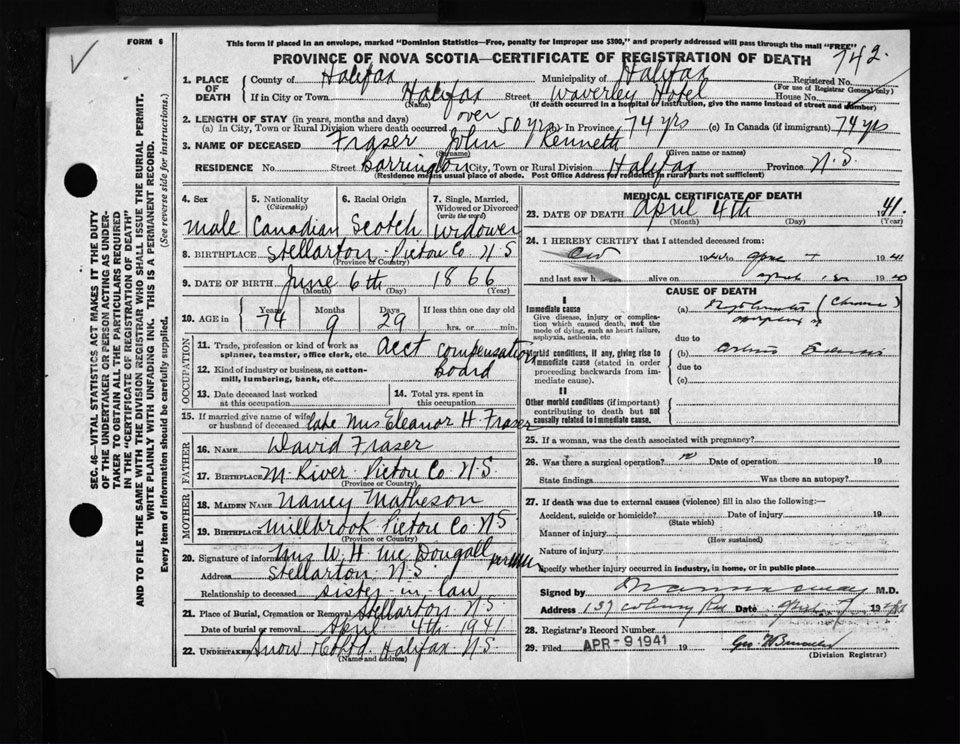 FORM 6
This form if placed in an envelope, marked "Dominion Statistics—Free, penalty for improper use $300," and properly addressed will pass through the mail "FREE"
PROVINCE OF NOVA SCOTIA—CERTIFICATE OF REGISTRATION OF DEATH 742.
1. PLACE OF DEATH County of Halifax Municipality of Halifax Registered No.
(For use of Registrar General only)
If in City or Town Halifax Street Waverley Hotel House No.
(Name) (If death occurred in a hospital or institution, give the name instead of street and number)
2. LENGTH OF STAY (in years, months and days)
(a) In City, Town or Rural Division where death occurred over 50 yrs In Province 74 yrs (c) In Canada (if immigrant) 74 yrs
3. NAME OF DECEASED Fraser John Kenneth
(Surname) (Given name or names)
RESIDENCE No. Street Barrington City, Town or Rural Division Halifax Province N.S.
(Residence means usual place of abode. Post Office Address for residents in rural parts not sufficient)
4. Sex male
5. Nationality (Citizenship) Canadian
6. Racial Origin Scotch
7. Single, Married, Widowed or Divorced (write the word) Widower
8. BIRTHPLACE Stellarton Pictou Co N S
(Province or Country)
9. DATE OF BIRTH June 6th 1866
(Month) (Day) (Year)
10. AGE in Years Months Days If less than one day old
74 9 29 hrs. or min.
OCCUPATION
11. Trade, profession or kind of work as spinner, teamster, office clerk, etc. acct compensation
12. Kind of industry or business, as cotton-mill, lumbering, bank, etc. Board
13. Date deceased last worked at this occupation
14. Total yrs. spent in this occupation
15. If married give name of wife or husband of deceased late Mrs Eleanor H. Fraser
FATHER
16. NAME David Fraser
17. BIRTHPLACE M. River Pictou Co N.S.
(Province or Country)
MOTHER
18. MAIDEN NAME Nancy Matheson
19. BIRTHPLACE Millbrook Pictou Co N S
(Province or Country)
20. Signature of informant Mrs W. H. McDougall
Address Stellarton N.S.
Relationship to deceased sister in law
21. Place of Burial, Cremation or Removal Stellarton N.S.
Date of burial or removal April 4th 1941
22. UNDERTAKER Snow Halifax N.S.
(Name and address)
MEDICAL CERTIFICATE OF DEATH
23. DATE OF DEATH April 4th 1941.
(Month) (Day) (Year)
24. I HEREBY CERTIFY that I attended deceased from:
and last saw h alive on
CAUSE OF DEATH
I
Immediate cause (a) (Chronic)
Give disease, injury or complication which caused death, not the mode of dying, such as heart failure, asphyxia, asthenia, etc.
due to
Morbid conditions, if any, giving rise to immediate cause (stated in order proceeding backwards from immediate cause). (b)
due to
(c)
II
Other morbid conditions (if important) contributing to death but not causally related to immediate cause.
25. If a woman, was the death associated with pregnancy?
26. Was there a surgical operation? no Date of operation 19
State findings Was there an autopsy?
27. If death was due to external causes (violence) fill in also the following:—
Accident, suicide or homicide? Date of injury 19
(State which)
Manner of injury
(How sustained)
Nature of injury
Specify whether injury occurred in industry, in home, or in public place
Signed by M.D.
Address 137 Date 19
28. Registrar's Record Number
29. Filed APR - 9 1941 19
(Division Registrar)
SEC. 46—VITAL STATISTICS ACT MAKES IT THE DUTY
OF THE UNDERTAKER OR PERSON ACTING AS UNDERTAKER TO OBTAIN ALL THE PARTICULARS REQUIRED
IN THE "CERTIFICATE OF REGISTRATION OF DEATH"
AND TO FILE THE SAME WITH THE DIVISION REGISTRAR WHO SHALL ISSUE THE BURIAL PERMIT.
WRITE PLAINLY WITH UNFADING INK. THIS IS A PERMANENT RECORD.
Every item of information should be carefully supplied. (See reverse side for instructions.)